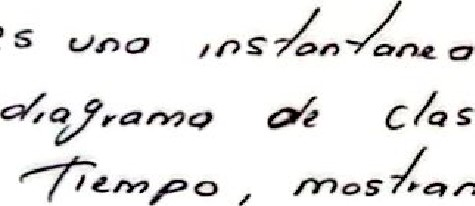 s uno instantanea
diagrama de clas
Tiempo, mostran